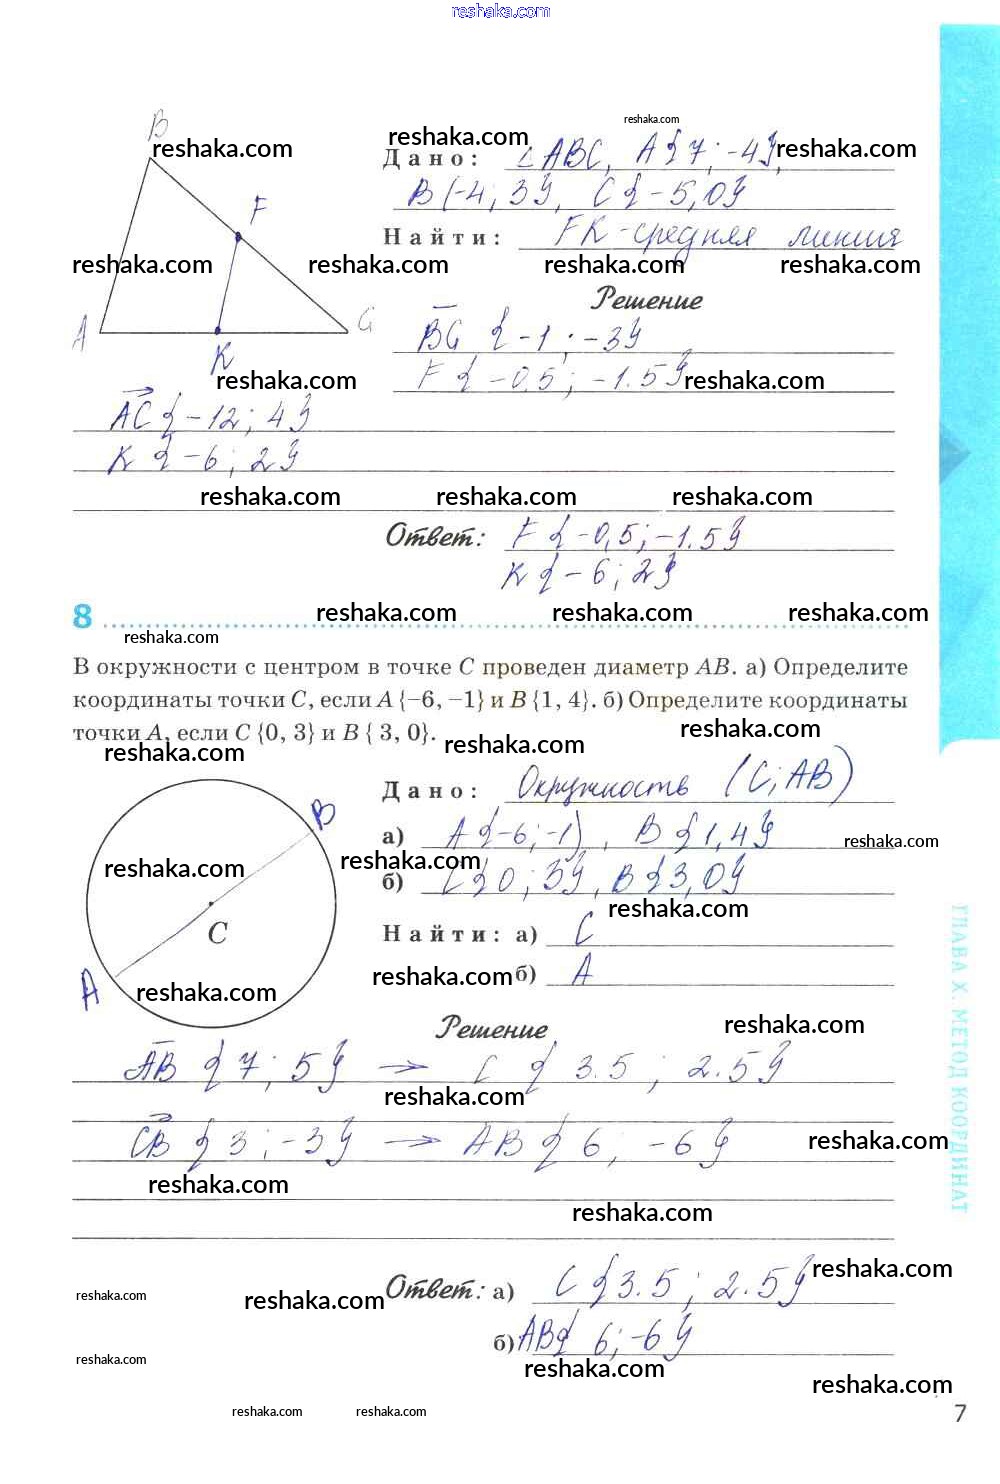 reshaka.com
B
reshaka.com
reshaka.com
reshaka.com
Дано: ∠ABC, A{7; -4},
reshaka.com
B{-4; 3}, C{-5,0}
F
Найти: FK - средняя линия
reshaka.com reshaka.com reshaka.com reshaka.com
Решение
A
C
K
BC {-1; -3}
F{-0,5; -1.5}
reshaka.com reshaka.com
AC{-12; 4}
K{-6; 2}
reshaka.com reshaka.com reshaka.com
Ответ: F{-0,5; -1.5}
K{-6; 2}
8
reshaka.com reshaka.com reshaka.com
reshaka.com
В окружности с центром в точке C проведен диаметр AB. а) Определите
координаты точки C, если A {−6, −1} и B {1, 4}. б) Определите координаты
точки A, если C {0, 3} и B { 3, 0}.
reshaka.com reshaka.com reshaka.com
Дано: Окружность (C; AB)
B
а) A{-6; -1), B{1,4}
reshaka.com
reshaka.com reshaka.com
б) C{0; 3}, B{3,0}
reshaka.com
C
Найти: а) C
A
reshaka.com
reshaka.com
б) A
Решение
reshaka.com
AB {7; 5} → C {3.5; 2.5}
reshaka.com
CB {3; -3} → AB {6; -6}
reshaka.com
reshaka.com
reshaka.com
reshaka.com
Ответ: а) C{3.5; 2.5}
reshaka.com
reshaka.com
б) AB{6; -6}
reshaka.com
reshaka.com
reshaka.com
reshaka.com reshaka.com
ГЛАВА X. МЕТОД КООРДИНАТ
7